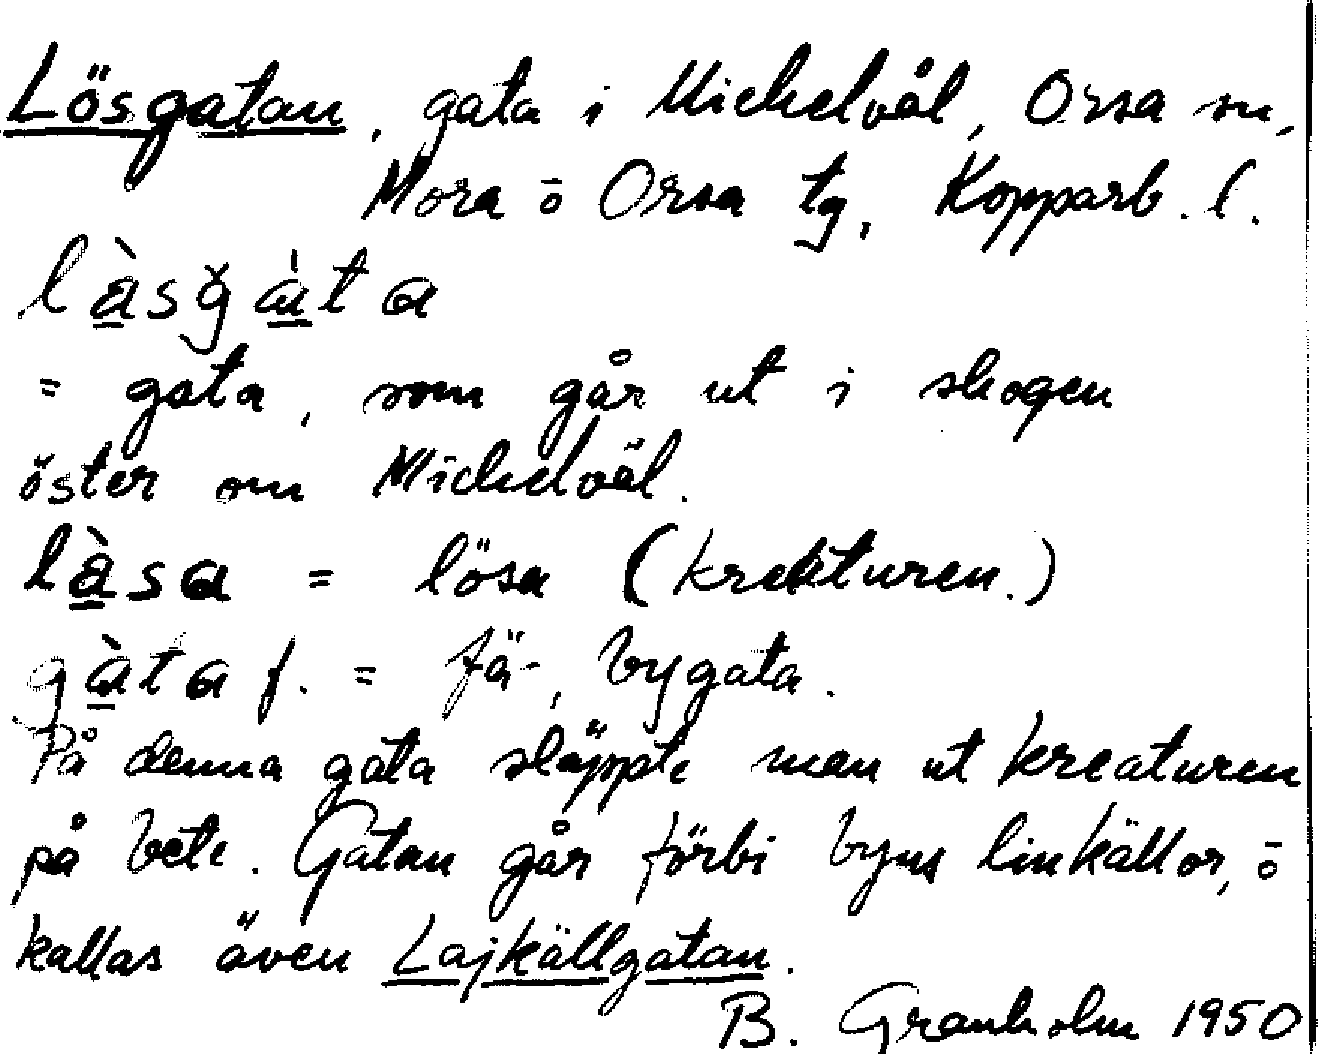 Lösgatan, gata i Mickelvål, Orsa sn,
Mora ō Orsa tg, Kopparb. l.
là̱sğà̱ta
= gata, som går ut i skogen
öster om Mickelvål.
là̱sa = lösa (kreaturen.)
gà̱ta f. = fä-, bygata.
På denna gata släppte man ut kreaturen
på bete. Gatan går förbi byns linkällor, ō
kallas även Lajkällgatan.
B. Granholm 1950